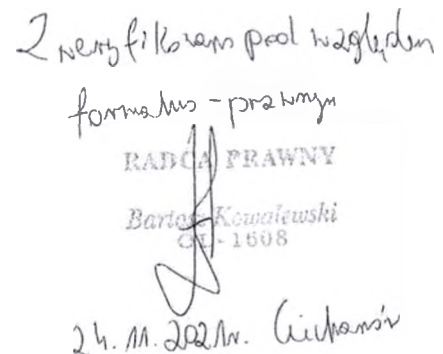 Zweryfikowano pod względem
formalno-prawnym
RADCA PRAWNY
Bartosz Kowalewski
OL-1608
24.11.2021r. Ciechanów